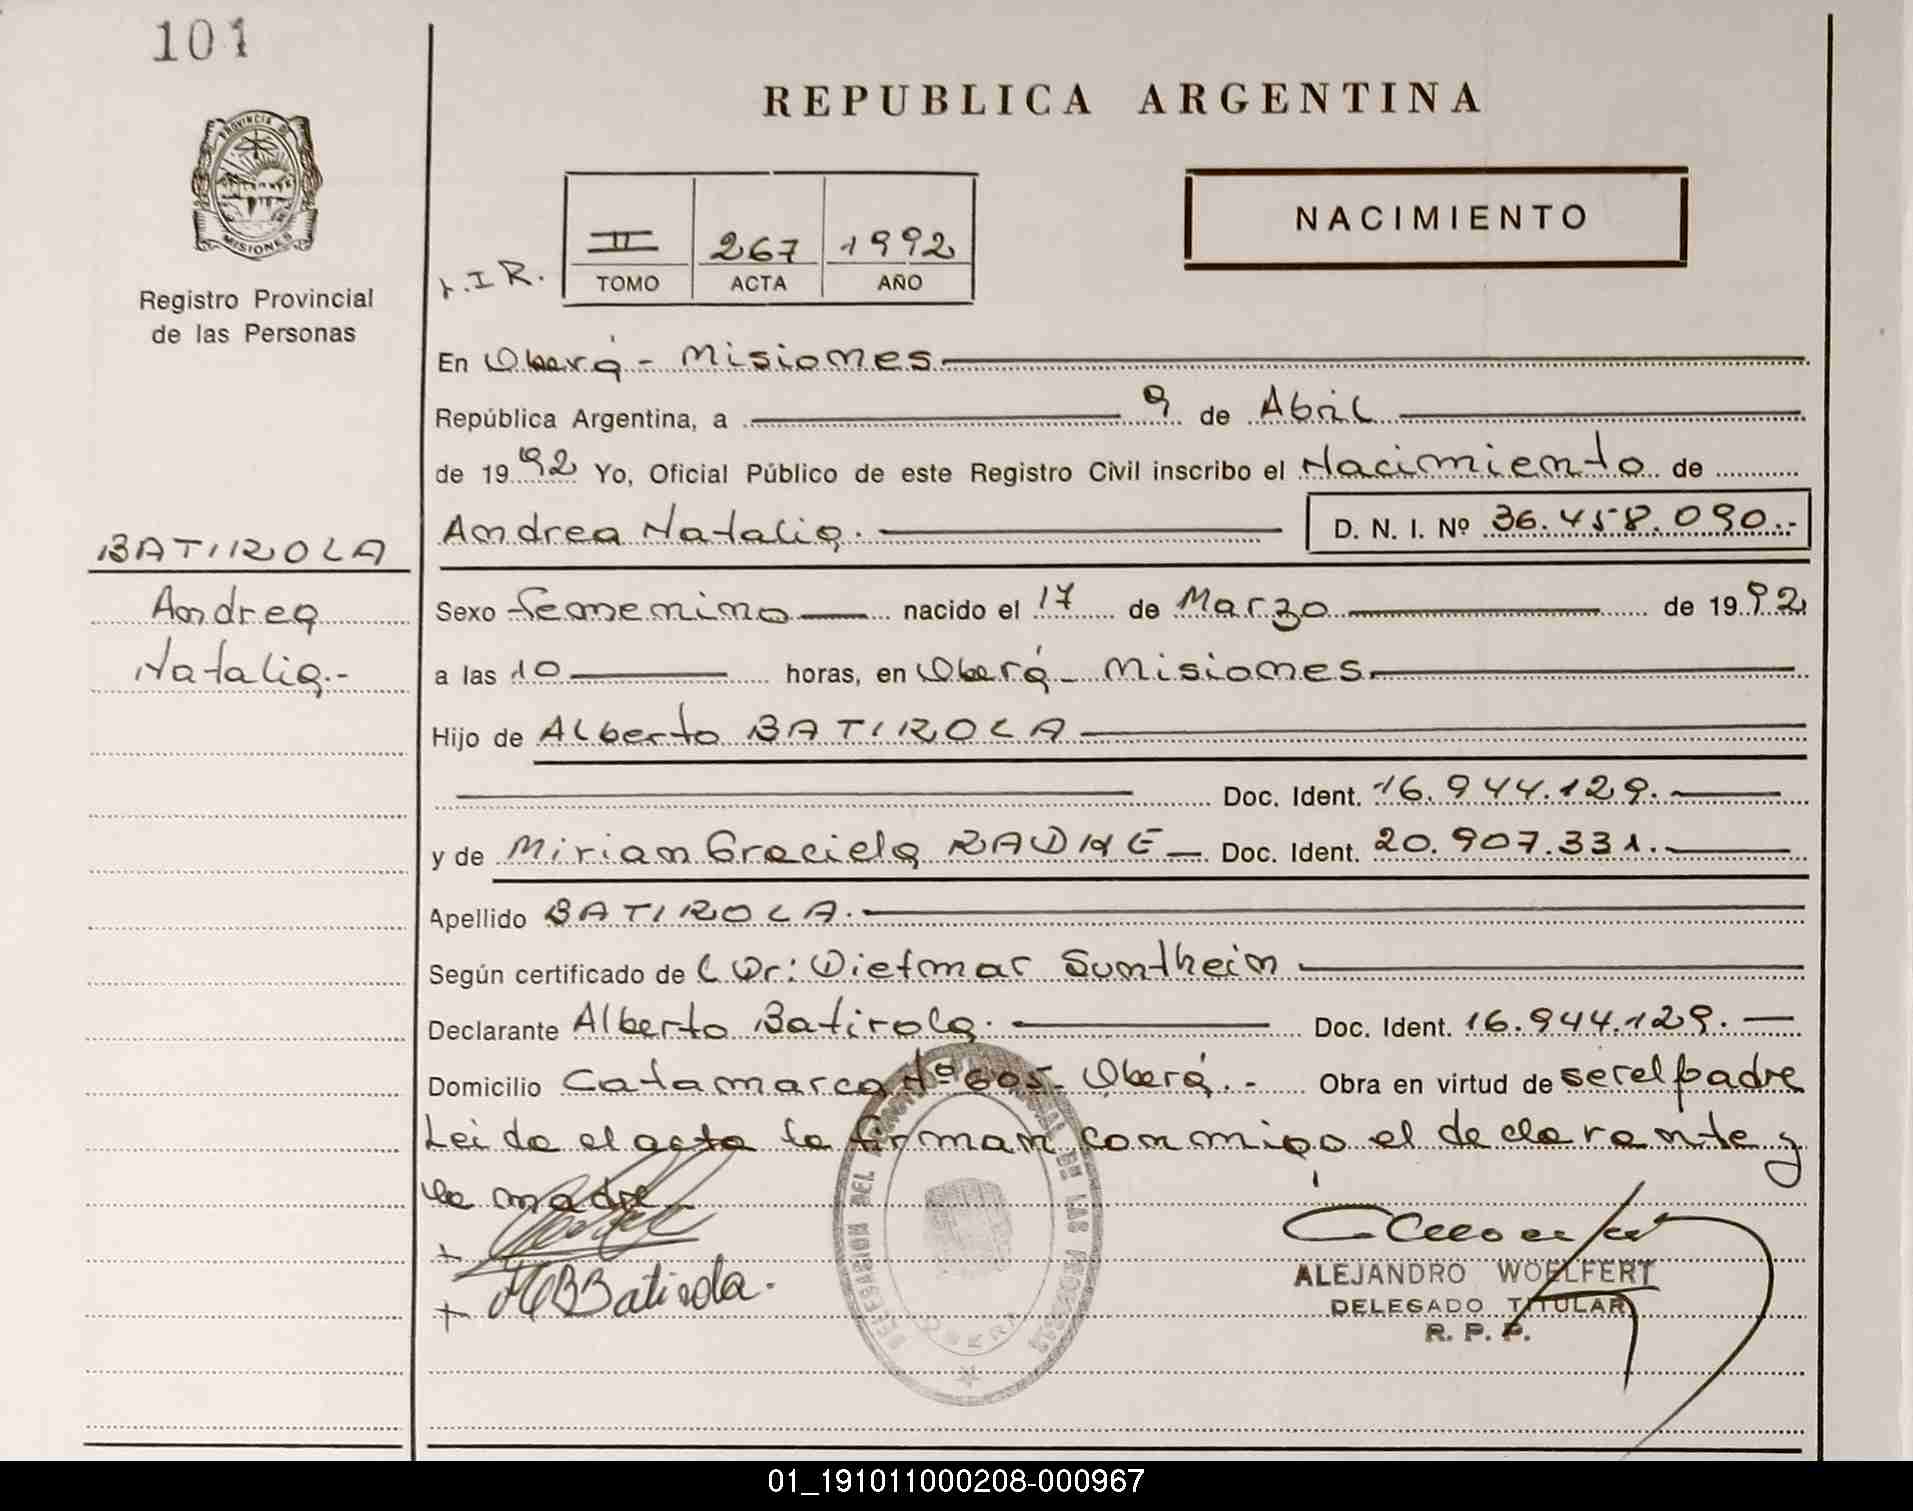 101
REPUBLICA ARGENTINA
PROVINCIA DE MISIONES
Registro Provincial
de las Personas
II 267 1992
TOMO ACTA AÑO
NACIMIENTO
En Oberá - Misiones
República Argentina, a 9 de Abril
de 1992 Yo, Oficial Público de este Registro Civil inscribo el Nacimiento de
Andrea Natalia. D. N. I. Nº 36.458.090.-
BATIROLA
Andrea
Natalia.-
Sexo femenino nacido el 17 de Marzo de 1992
a las 10 horas, en Oberá - Misiones
Hijo de Alberto BATIROLA
Doc. Ident. 16.944.129.
y de Mirian Graciela RADKE Doc. Ident. 20.907.331.
Apellido BATIROLA.
Según certificado de Dr: Dietmar Suntheim
Declarante Alberto Batirola. Doc. Ident. 16.944.129.
Domicilio Catamarca Nº 605- Oberá.- Obra en virtud de ser el padre
Leida el acta la firman conmigo el declarante y
la madre
Batirola.
ALEJANDRO WOELFERT
DELEGADO TITULAR
R. P. P.
01_191011000208-000967